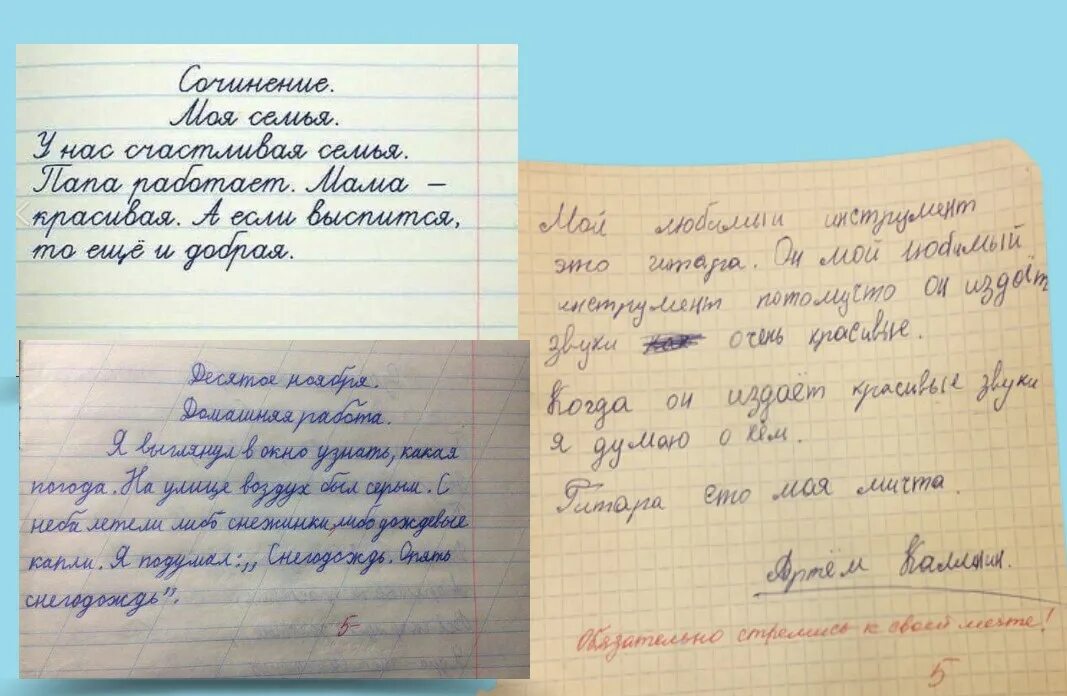 Сочинение.
Моя семья.
У нас счастливая семья.
Папа работает. Мама –
красивая. А если выспится,
то ещё и добрая.
Десятое ноября.
Домашняя работа.
Я выглянул в окно узнать, какая
погода. На улице воздух был серым. С
неба летели либо снежинки, либо дождевые
капли. Я подумал: „Снегодождь. Опять
снегодождь".
5-
Мой любимый инструмент
это гитара. Он мой любимый
инструмент потомучто он издаёт
звуки очень красивые.
Когда он издаёт красивые звуки
я думаю о нём.
Гитара ето моя мичта.
Артём Калинин.
Обязательно стремись к своей мечте!
5